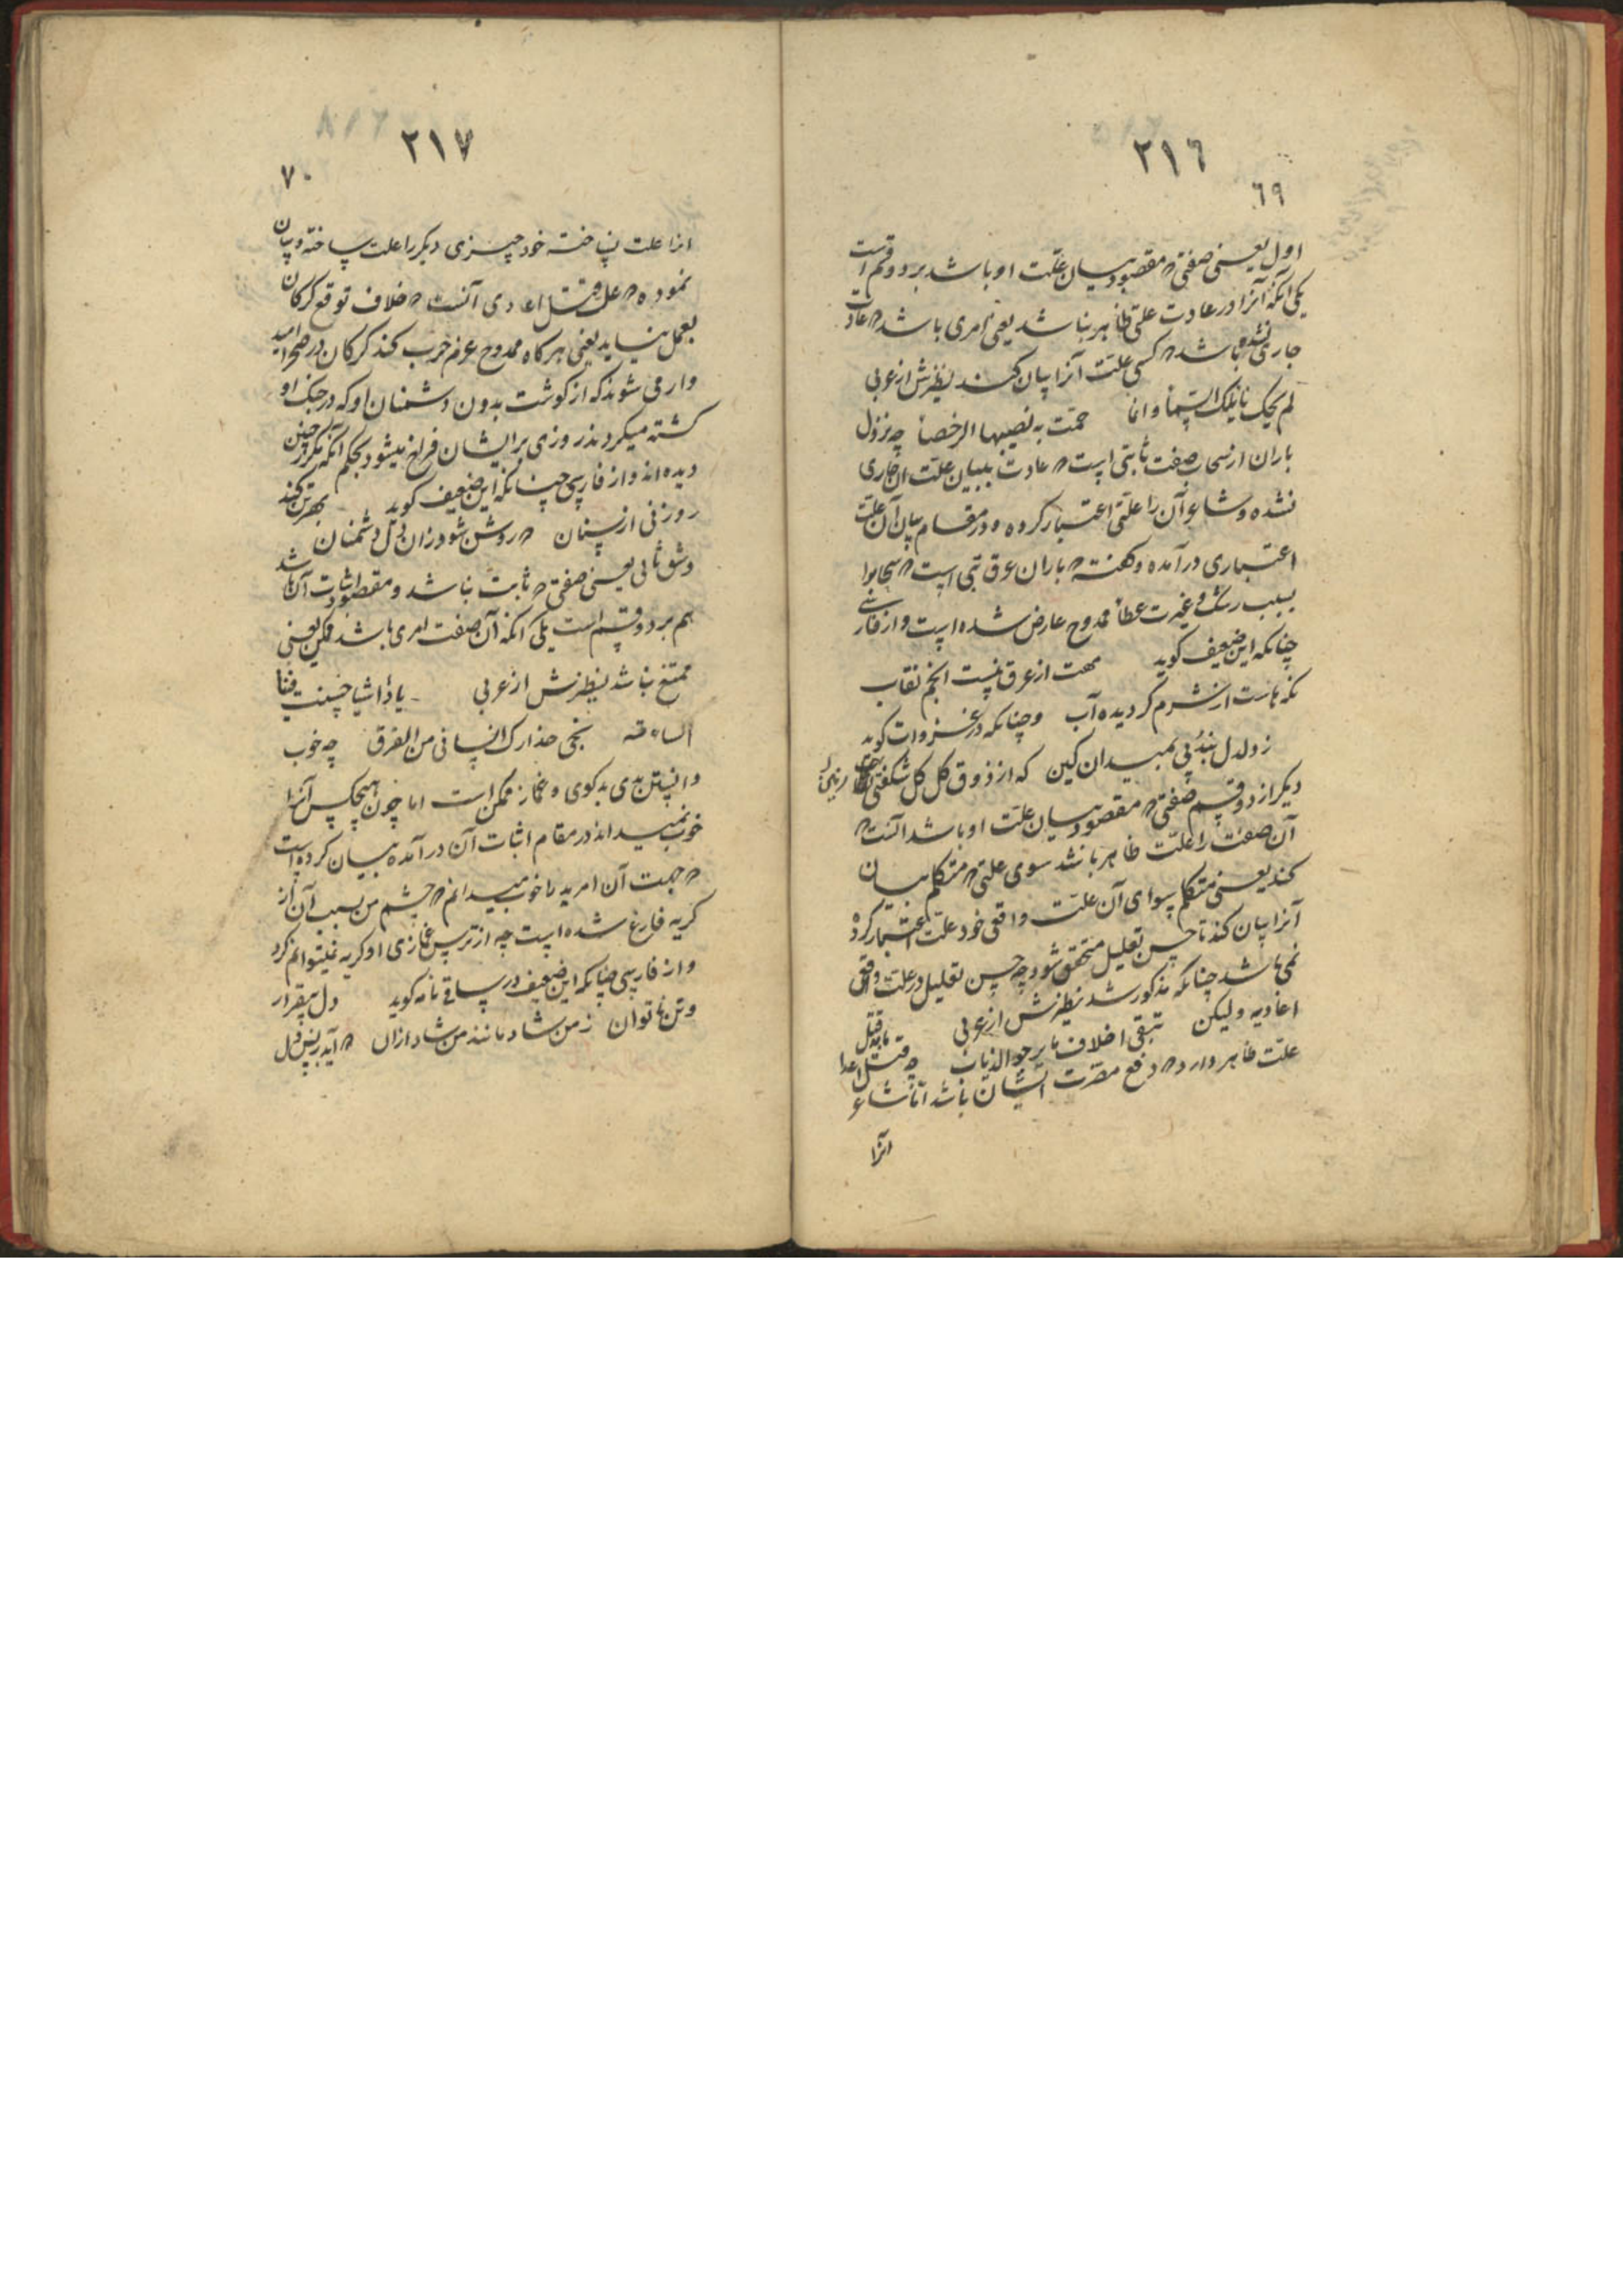 ٢١٦
٦٩
اول یعنی صفتی که مقصود بیان علت او باشد بر دو قسم است
یکی آنکه آنرا در عادت علتی ظاهر نباشد یعنی امری باشد که عادت
جاری نشده باشد که کسی علت آنرا بیان کند نظیرش از عربی
لم یحک نائلک السما وانما حمت به فصبیبها الرخصا چه نزول
باران از سحاب صفت ثابتی است که عادت ببیان علت آن جاری
نشده و شاعر آن را علتی اعتبار کرده و در مقام بیان آن علت
اعتباری درآمده و گفته که باران عرق تبی است که سحاب را
بسبب رشک و غیرت عطا ممدوح عارض شده است و از فارسی
چنانکه این ضعیف گوید مهت از عرق نیست انجم نقاب
که مازت از شرم گردیده آب و چنانکه در غزوات گوید
ز دلدل بندپی بمیدان کین که از ذوق گل گل شکفتی
دیگر از دو قسم صفتی که مقصود بیان علت او باشد آنست که
آن صفت را علت ظاهر باشد سوی علتی که متکلم بیان
کند یعنی متکلم سوای آن علت واقعی خود علت اعتبار کرده
آنرا بیان کند تا حسن تعلیل متحقق شود چه حسن تعلیل در علت واقعی
نمی باشد چنانکه مذکور شد نظیرش از عربی ما به قتل
اعادیه ولیکن یتقی اخلاف ما یرجو الذیاب چه قتل اعدا
علت ظاهر دارد که دفع مضرت ایشان باشد اما شاعر
آنرا
٢١٧
٧٠
آنرا علت نساخته خود چیزی دیگر را علت ساخته و بیان
نموده که علت قتل اعادی آنست که خلاف توقع گرگان
بعمل نیاید یعنی هرگاه ممدوح عزم حرب کند گرگان در صحرا امید
وار می شوند که از گوشت بدون دشمنان او که در جنگ او
کشته میگردند روزی بر ایشان فراخ میشود بحکم آنکه مکرر چنین
دیده اند و از فارسی چنانکه این ضعیف گوید بهر تن کند
روزنی از سنان که روشن شود زان دل دشمنان
و شق ثانی یعنی صفتی که ثابت نباشد و مقصود اثبات آن باشد
هم بر دو قسم است یکی آنکه آن صفت امری باشد ممکن یعنی
ممتنع نباشد نظیرش از عربی یا واشیا حسنت فینا
اساءته نجی حذارک انسانی من الغرق چه خوب
دانستن بدی بدگوی و غماز ممکن است اما چون هیچکس آنرا
خوب نمیداند در مقام اثبات آن درآمده بیان کرده است
که جهت آن امر بد را خوب میدانم که چشم من بسبب آن از
گریه فارغ شده است چه از ترس غمازی او گریه نمیتوانم کرد
و از فارسی چنانکه این ضعیف در ساقی نامه گوید دل بیقرار
و تن ناتوان ز من شاد مانند من شاد ازان که آید